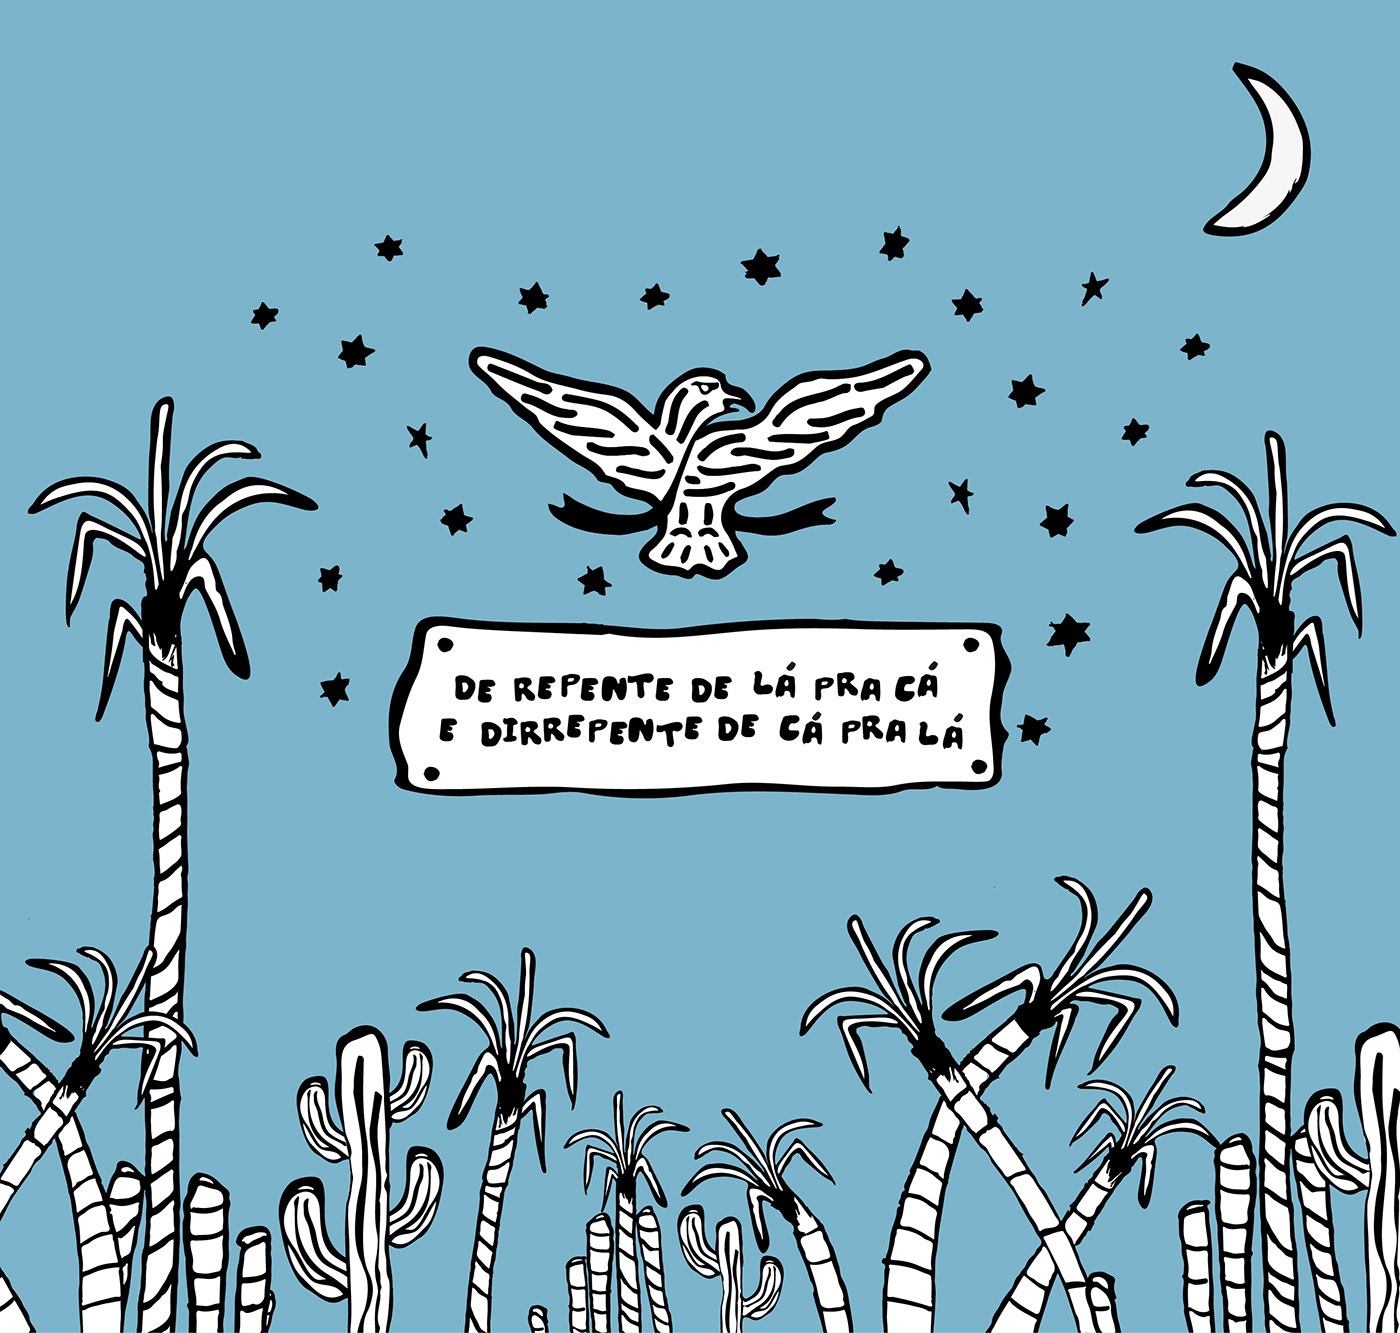 DE REPENTE DE LÁ PRA CÁ
E DIRREPENTE DE CÁ PRA LÁ